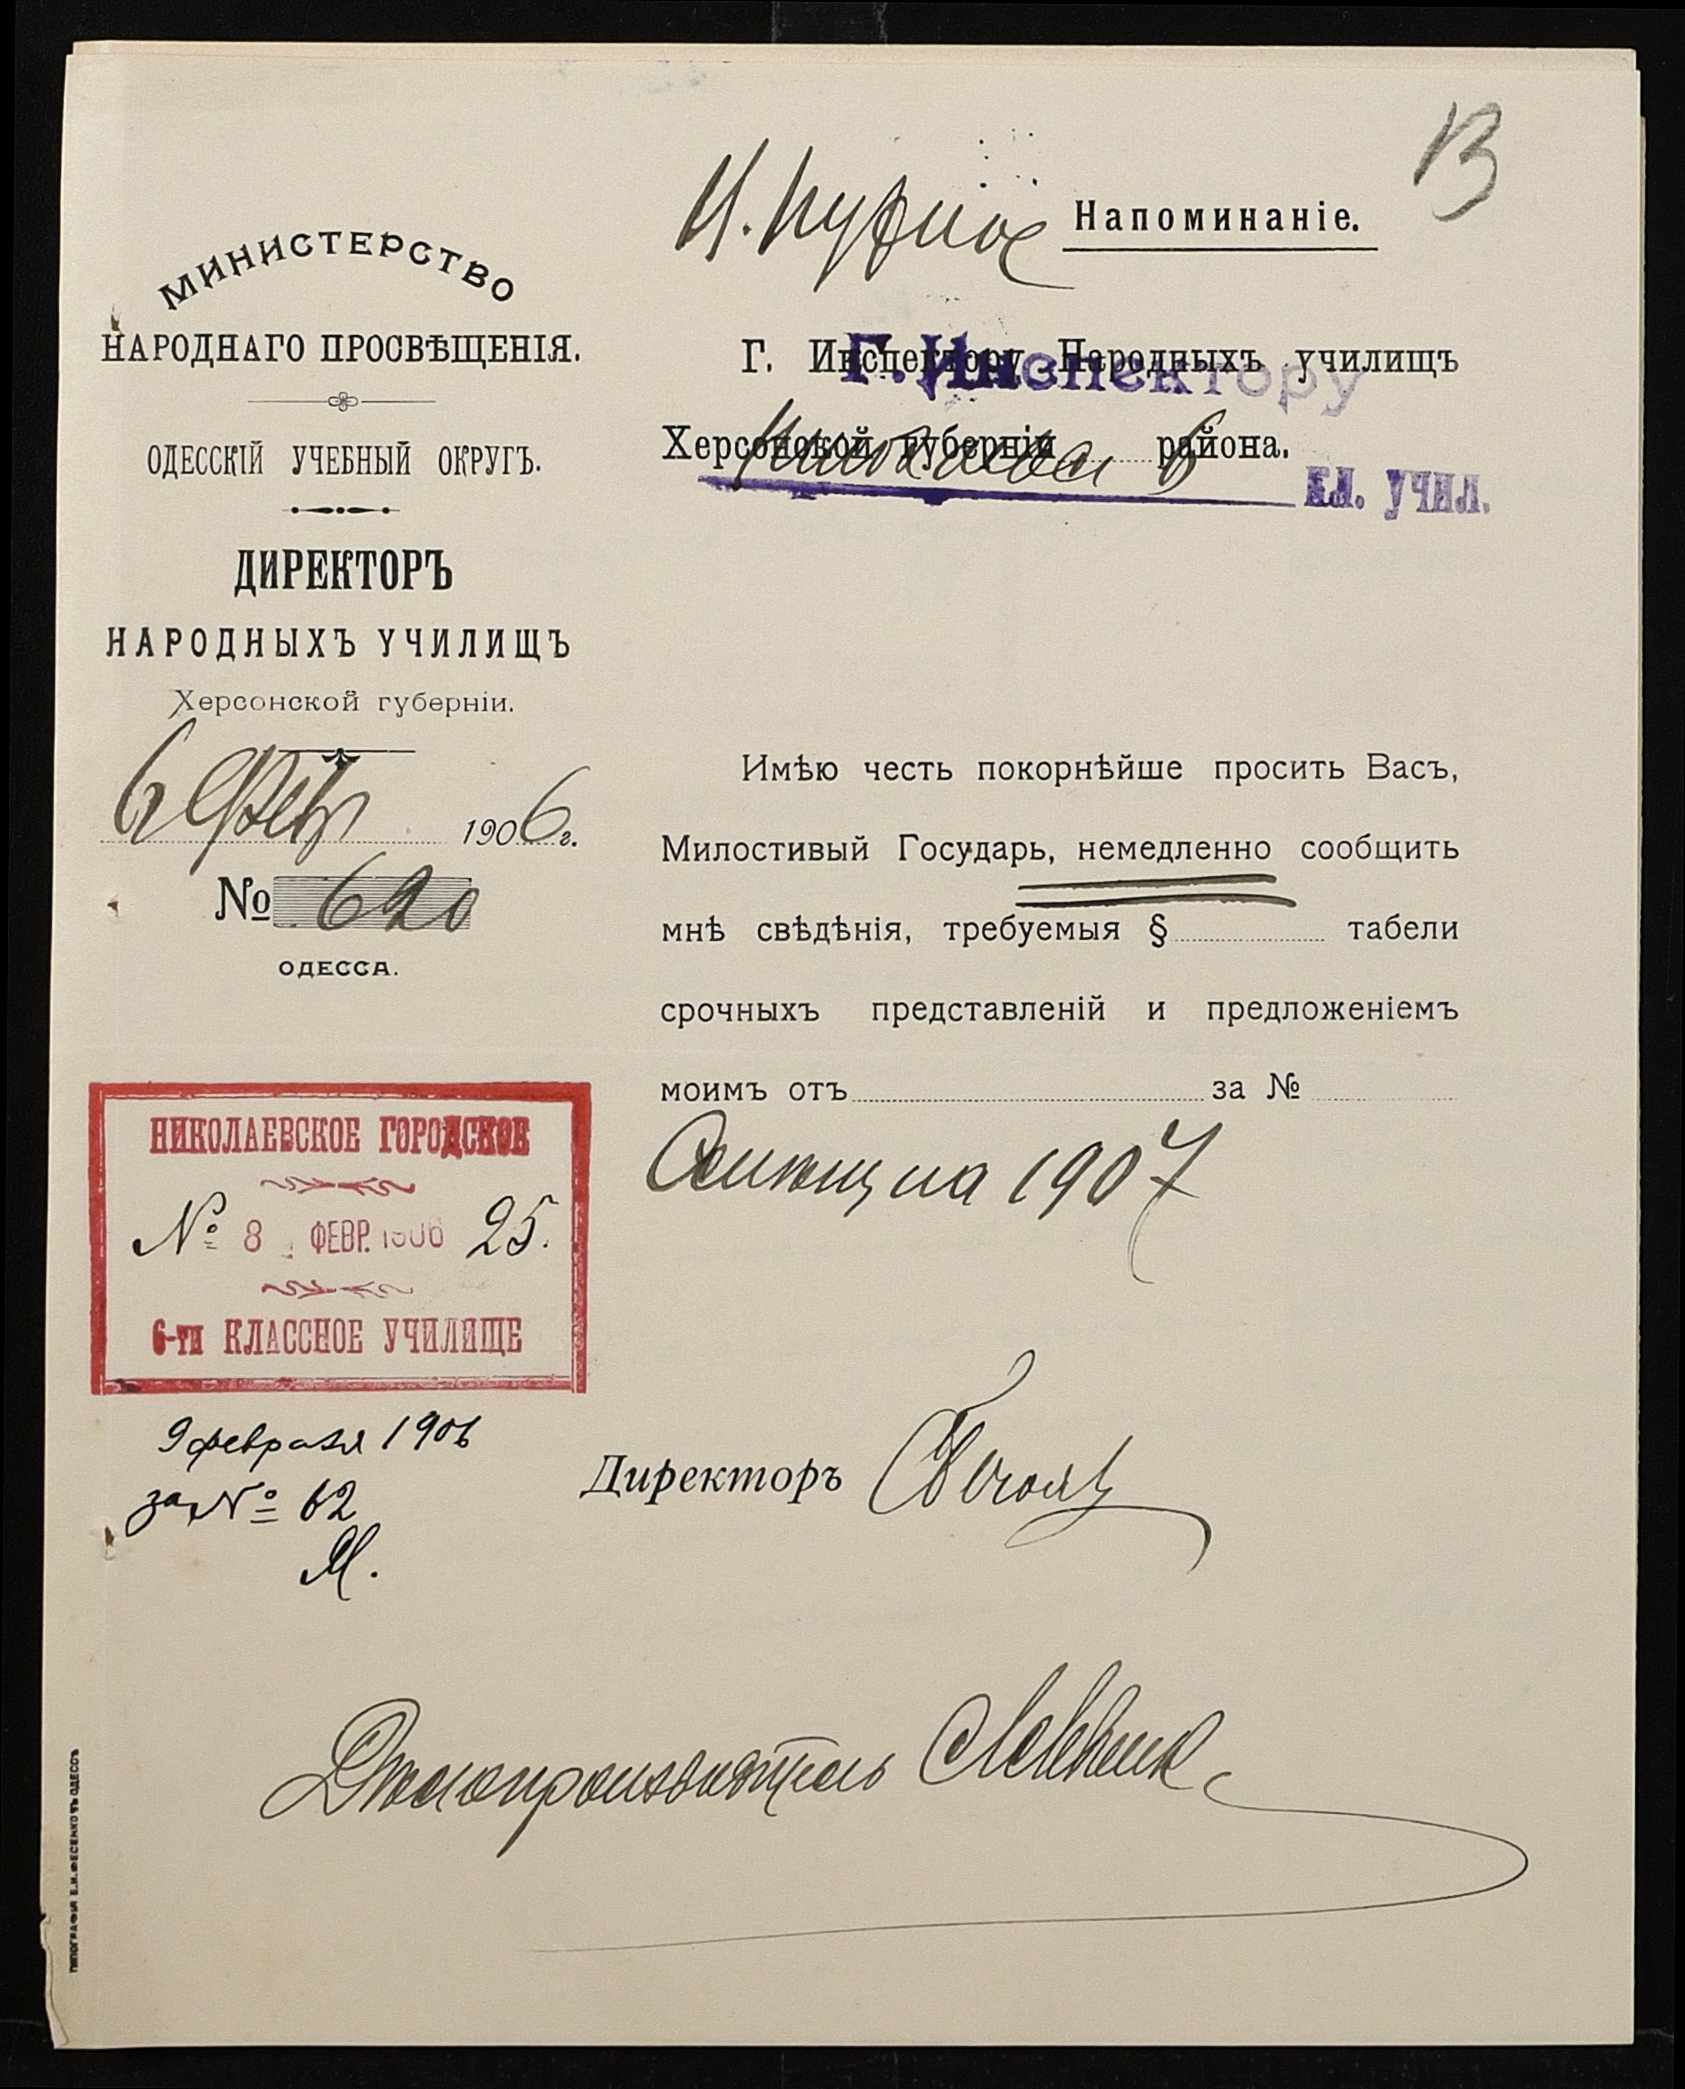 13
Напоминаніе.
МИНИСТЕРСТВО
НАРОДНАГО ПРОСВѢЩЕНІЯ.
ОДЕССКІЙ УЧЕБНЫЙ ОКРУГЪ.
ДИРЕКТОРЪ
НАРОДНЫХЪ УЧИЛИЩЪ
Херсонской губерніи.
6 Фев 1906 г.
№ 620
ОДЕССА.
Г. Инспектору Народныхъ училищъ
Г. Инспектору
Херсонской губерніи района.
Николаева 6
кл. учил.
Имѣю честь покорнѣйше просить Васъ,
Милостивый Государь, немедленно сообщить
мнѣ свѣдѣнія, требуемыя § табели
срочныхъ представленій и предложеніемъ
моимъ отъ за №
на 1907
НИКОЛАЕВСКОЕ ГОРОДСКОЕ
№ 8 ФЕВР. 1906 25.
6-ти КЛАССНОЕ УЧИЛИЩЕ
9 февраля 1906
за № 62
М.
Директоръ
Дѣлопроизводитель
ТИПОГРАФІЯ Е.И.ФЕСЕНКО ВЪ ОДЕССѢ